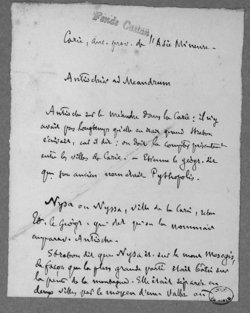 Fonds Castan
Carie, anc. prov. de l'Asie Mineure.
Antiochia ad Meandrum
Antioche sur le méandre dans la Carie : il n'y
avait pas longtemps qu'elle en était quand Strabon
écrivait, car il dit : on doit la compter présentement
entre les villes de Carie. — Etienne le géogr. dit
que son ancien nom était Pythopolis.
Nysa ou Nyssa, ville de la Carie, selon
Et. le Géogr. qui dit qu'on la nommait
auparav. Antioche.
Strabon dit que Nysa ét. sur le mont Mesogis,
de façon que la plus grande partie était bâtie sur
la pente de la montagne. Elle était séparée en
deux villes par le moyen d'une vallée ou